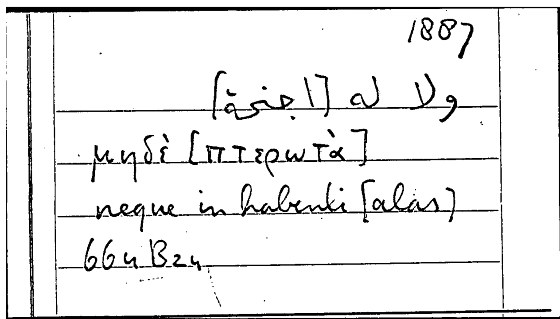 1887
ولا له [اجنحة]
μηδὲ [πτερωτὰ]
neque in habenti [alas]
664 B24